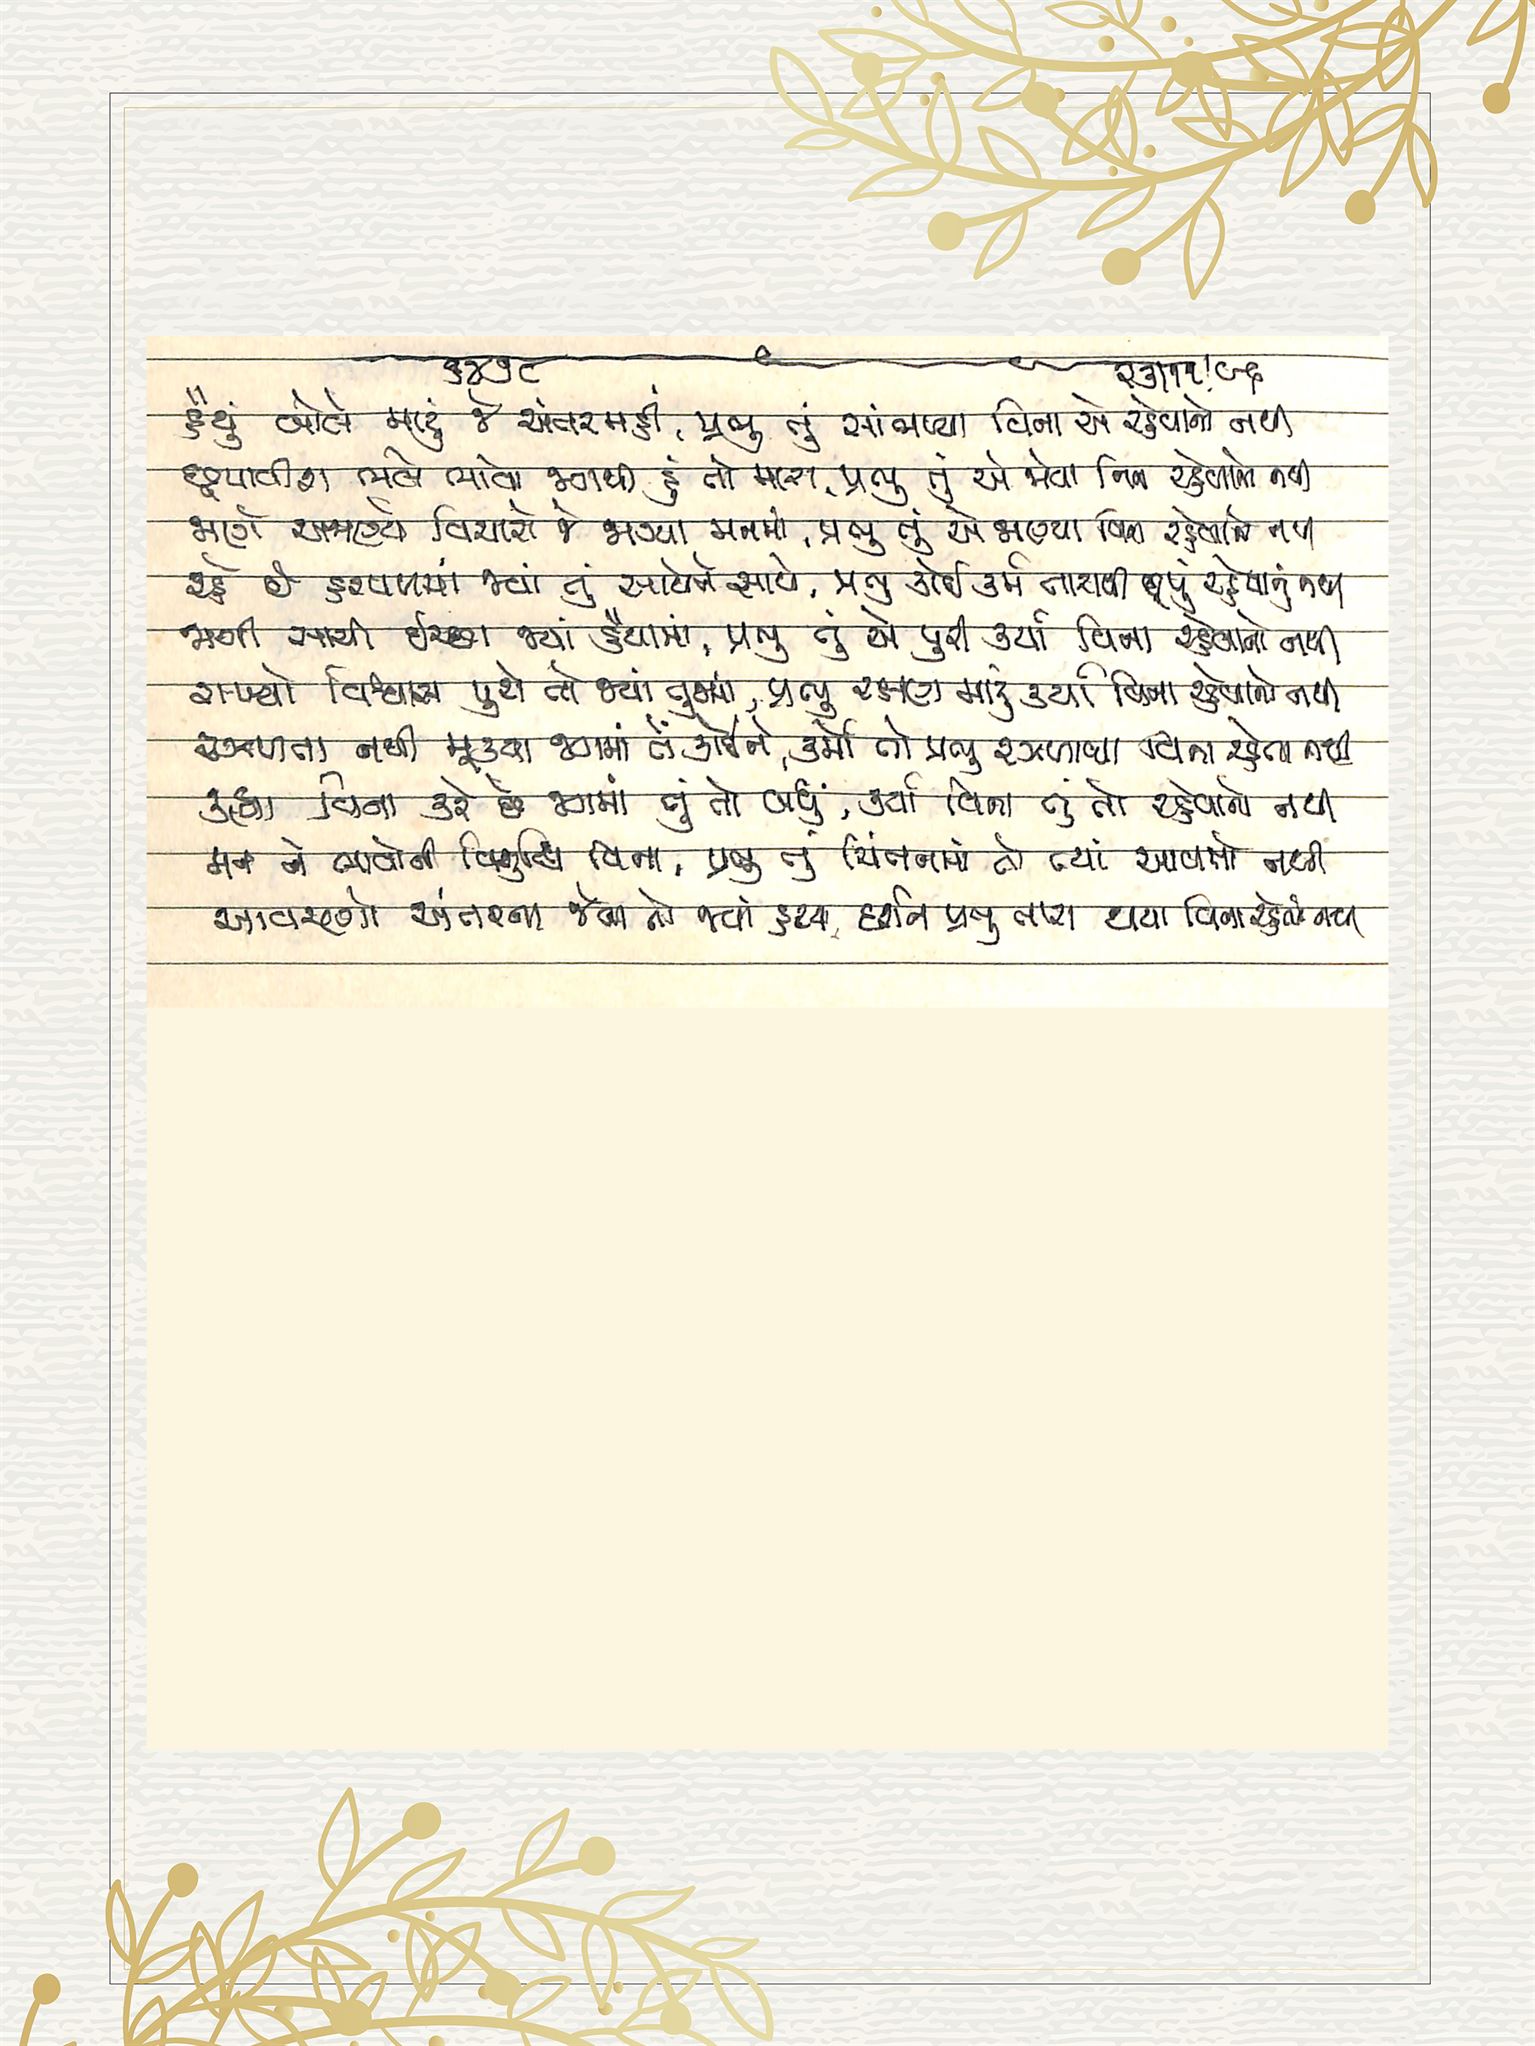 ૬૪૭૮ ૨૩/૧૧/૮૬
હૈયું બોલે મારું જે અંતરમહીં, પ્રભુ તું સાંભળ્યા વિના એ રહેવાનો નથી
છૂપાવીશ ભલે ભાવો જગથી હું તો મારા, પ્રભુ તું એ જોયા વિના રહેવાનો નથી
જાણે અજાણ્યે વિચારો જે જાગ્યા મનમાં, પ્રભુ તું એ જાણ્યા વિના રહેવાનો નથી
રહે છે હરપળમાં જ્યાં તું સાથેને સાથે, પ્રભુ કોઈ કર્મ તારાથી છૂપું રહેવાનું નથી
જાગી સાચી ઈચ્છા જ્યાં હૈયામાં, પ્રભુ તું એ પુરી કર્યા વિના રહેવાનો નથી
રાખ્યો વિશ્વાસ પુરો તો જ્યાં તુજમાં, પ્રભુ રક્ષણ મારું કર્યા વિના રહેવાનો નથી
રઝળતા નથી મૂક્યા જગમાં તેં કોઈને, કર્મો તો પ્રભુ રઝળાવ્યા વિના રહેતા નથી
કહ્યા વિના કરે છે જગમાં તું તો બધું, કર્યા વિના તું તો રહેવાનો નથી
મન ને ભાવોની વિશુદ્ધિ વિના, પ્રભુ તું ચિંતનમાં તો ત્યાં આવતો નથી
આવરણો અંતરના જેના તો જ્યાં હટયા, દર્શન પ્રભુ તારા થયા વિના રહેતાં નથી